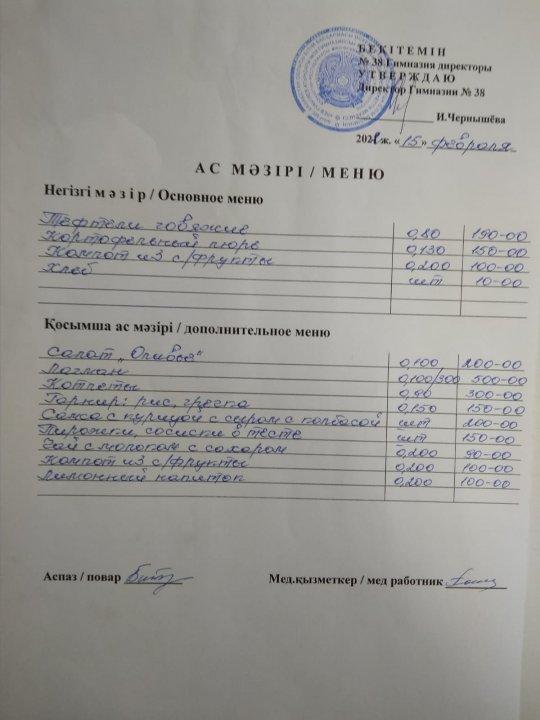 БЕКІТЕМІН
№ 38 Гимназия директоры
УТВЕРЖДАЮ
Директор Гимназии № 38
И.Чернышёва
202 ж. «15» февраля
АС МӘЗІРІ / МЕНЮ
Негізгі мәзір / Основное меню
Тефтели говяжие 0,80 190-00
Картофельный пюре 0,130 150-00
Компот из с/фрукты 0,200 100-00
Хлеб шт 10-00
Қосымша ас мәзірі / дополнительное меню
Салат „Оливье“ 0,100 200-00
Лагман 0,100/300 500-00
Котлеты 0,80 300-00
Гарнир: рис, гречка 0,150 150-00
Самса с курицой с сыром с колбасой шт 200-00
Пирожки, сосиски в тесте шт 150-00
Чай с молоком с сахаром 0,200 90-00
Компот из с/фрукты 0,200 100-00
Лимонный напиток 0,200 100-00
Аспаз / повар
Мед.қызметкер / мед работник